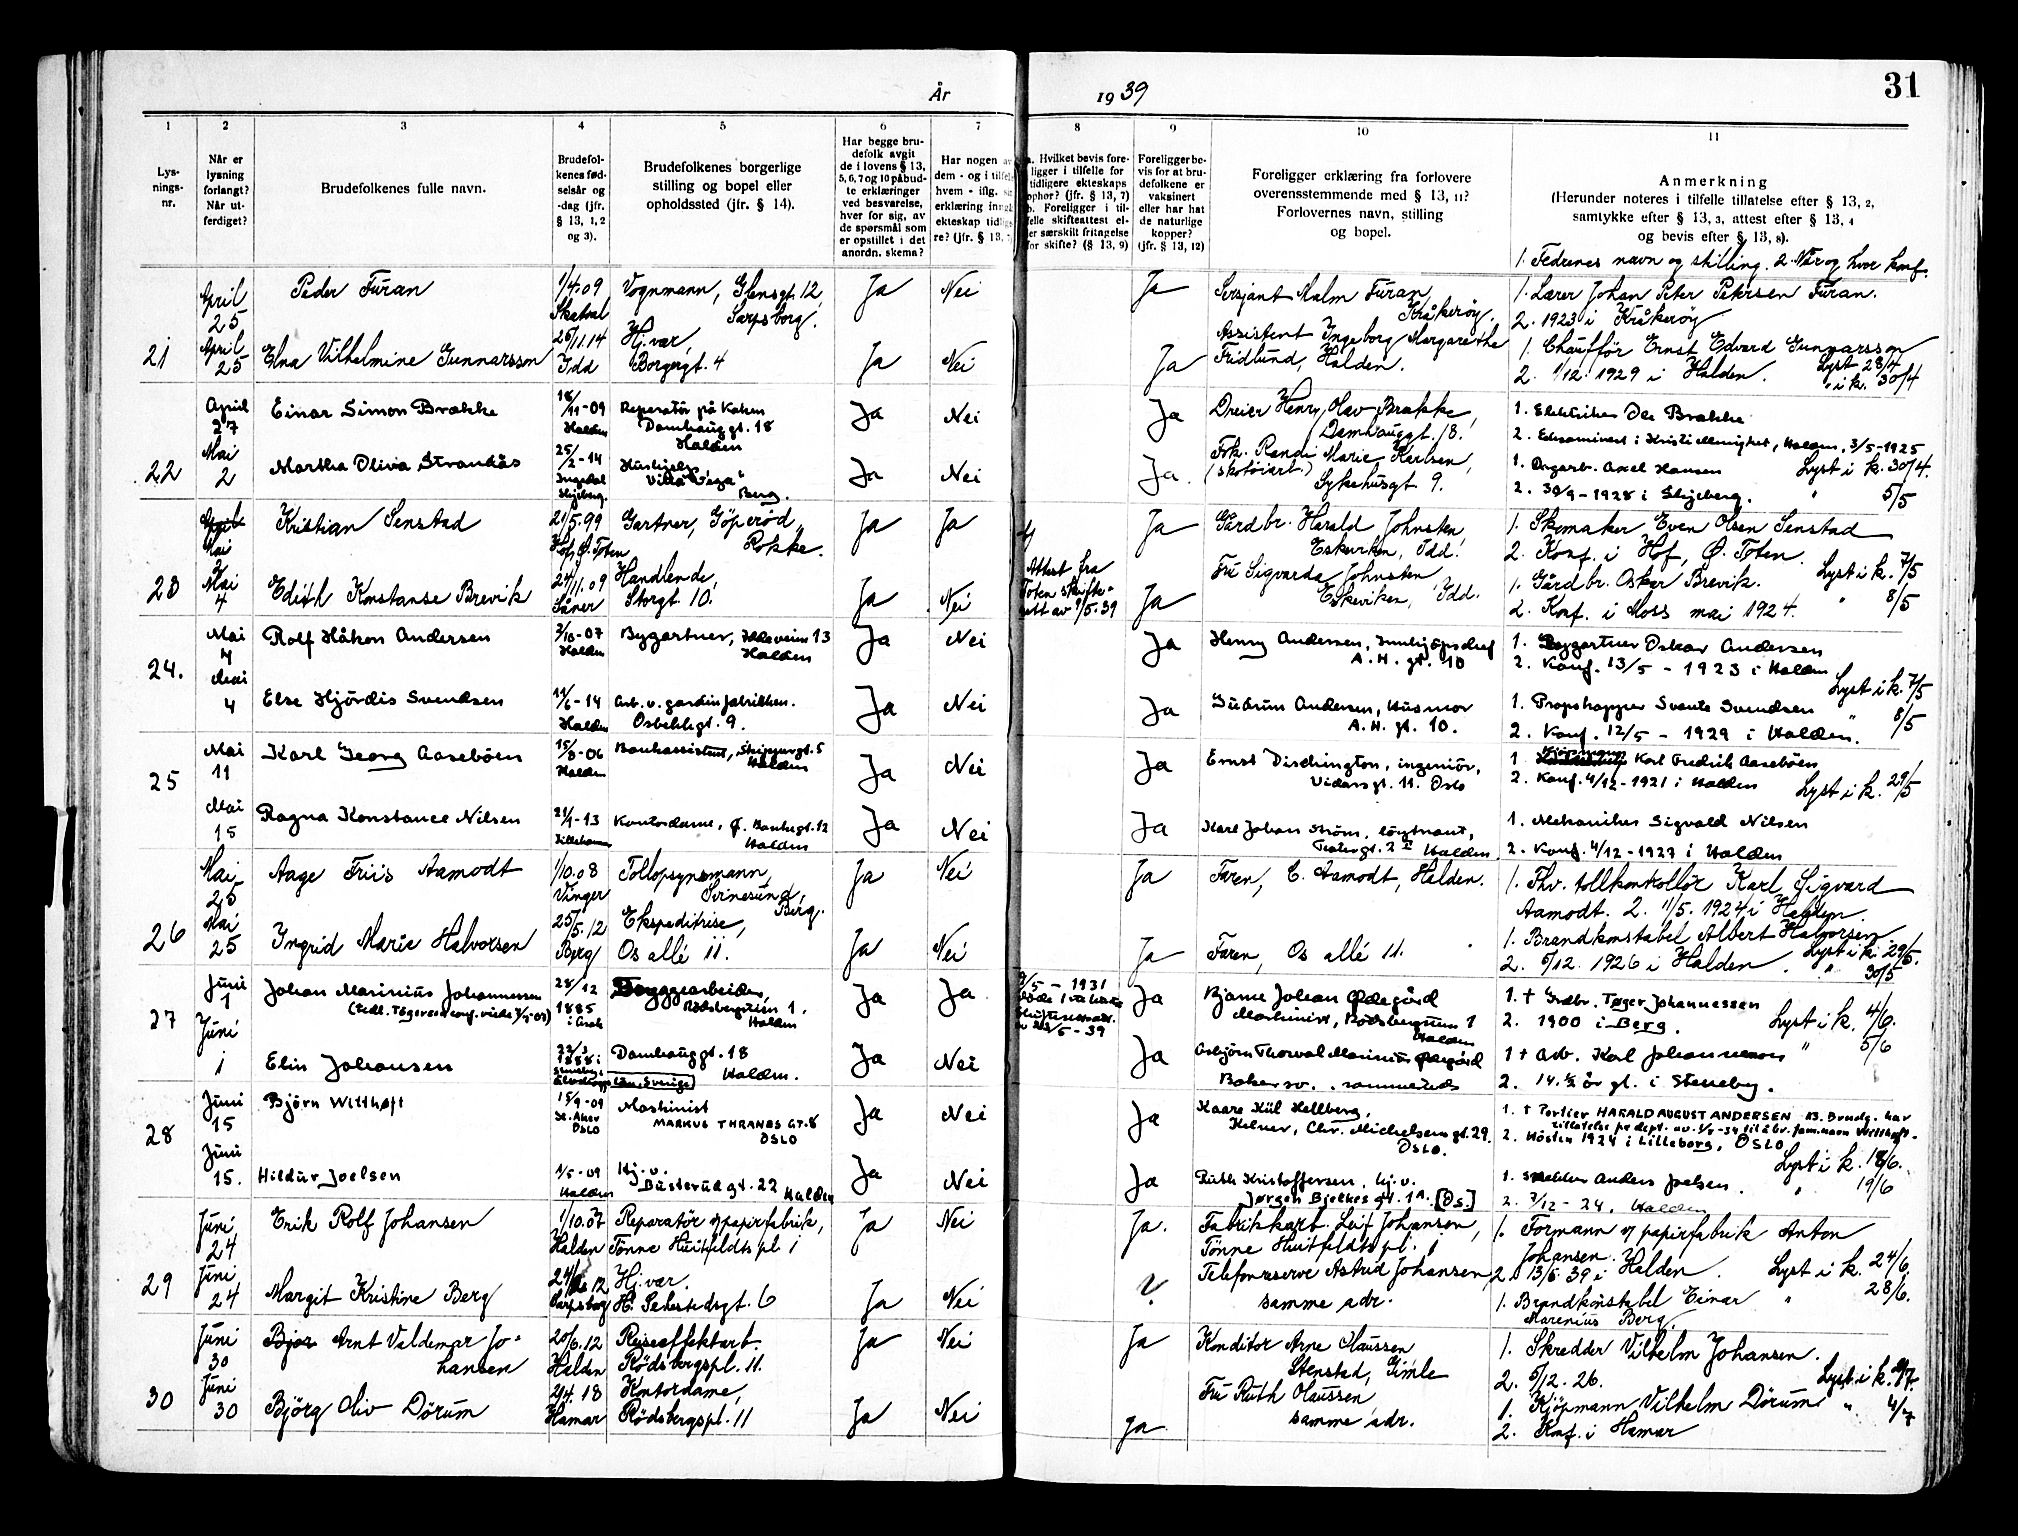 31
År 1939
1
2
3
4
5
6
7
8
9
10
11
Lys-
nings-
nr.
Når er
lysning
forlangt?
Når ut-
ferdiget?
Brudefolkenes fulle navn.
Brudefol-
kenes fød-
selsår og
-dag (jfr.
§ 13, 1, 2
og 3).
Brudefolkenes borgerlige
stilling og bopel eller
opholdssted (jfr. § 14).
Har begge bru-
defolk avgit
de i lovens § 13,
5, 6, 7 og 10 påbud-
te erklæringer
ved besvarelse,
hver for sig, av
de spørsmål som
er opstillet i det
anordn. skema?
Har nogen av
dem - og i tilfelle
hvem - iflg.
erklæring inngått
ekteskap tidlige-
re? (jfr. § 13, 7)
a. Hvilket bevis fore-
ligger i tilfelle for
tidligere ekteskaps
ophør? (jfr. § 13, 7)
b. Foreligger i til-
felle skifteattest el-
ler særskilt fritagelse
for skifte? (§ 13, 9)
Foreligger be-
vis for at bru-
defolkene er
vaksinert
eller har hat
de naturlige
kopper?
(jfr. § 13, 12)
Foreligger erklæring fra forlovere
overensstemmende med § 13, 11?
Forlovernes navn, stilling
og bopel.
Anmerkning
(Herunder noteres i tilfelle tillatelse efter § 13, 2,
samtykke efter § 13, 3, attest efter § 13, 4
og bevis efter § 13, 8).
1. Fedrenes navn og stilling. 2. Når og hvor konf.
21
April
25
Peder Furan
1/4.09
Skatval
Vognmann, Glensgt. 12,
Sarpsborg.
Ja
Nei
Ja
Sersjant Malm Furan,
Kråkerøy.
1. Lærer Johan Peter Petersen Furan.
2. 1923 i Kråkerøy
April
25
Elna Vilhelmine Gunnarsson
26/11.14
Idd
Hj.vær,
Borgergt. 4
Ja
Nei
Ja
Assistent Ingeborg Margarethe
Fridlund, Halden.
1. Chauffør Ernst Edvard Gunnarsson
2. 1/12. 1929 i Halden.
Lyst 28/4
" i k. 30/4
22
April
27
Einar Simon Brække
18/11-09
Halden
Reparatør på Kaken
Damhauggt. 18
Halden
Ja
Nei
Ja
Dreier Henry Olav Brække,
Damhauggt. 18.
1. Elektriker Ole Brække
2. Eksaminert i Kristi menighet, Halden, 3/5-1925
Mai
2
Martha Olivia Strandås
25/2-14
Ingedal
Skjeberg.
Hushjelp,
Villa "Vega"
Berg.
Ja
Nei
Ja.
Frk. Randi Marie Karlsen,
(skotøiarb.)
Sykehusgt 9.
1. Ungarb. Axel Hansen
2. 30/9-1928 i Skjeberg.
Lyst i k. 30/4.
" 5/5
23
April
Mai
2
Kristian Senstad
21/5.99
Hof, Ø. Toten
Gartner, Gjøperød,
Rokke.
Ja
Ja
Attest fra
Toten skifte-
rett av 9/5.39
Ja
Gårdbr. Harald Johnsten,
Eskeviken, Idd.
1. Skomaker Even Olsen Senstad
2. Konf. i Hof, Ø. Toten.
Mai
4
Edith Konstanse Brevik
24/11.09,
Såner
Handlende,
Storgt. 10.
Ja
Nei
Ja
Fru Sigvarda Johnsten
Eskeviken, Idd.
1. Gårdbr. Oskar Brevik.
2. Konf. i Moss mai 1924.
Lyst i k. 7/5
" 8/5
24.
Mai
4
Rolf Håkon Andersen
2/10-07
Halden
Bygartner, Iddeveien 13
Halden
Ja
Nei
Ja
Henry Andersen, Innkjøpssjef
A. H. gt. 10
1. Bygartner Oskar Andersen
2. Konf. 13/5 - 1923 i Halden
Mai
4
Else Hjørdis Svendsen
11/6-14
Halden
Arb. v. gardinfabrikken.
Osbekkgt. 9.
Ja
Nei
Ja
Gudrun Andersen, Husmor
A. H. gt. 10.
1. Propskapper Svante Svendsen
2. Konf. 12/5 - 1929 i Halden.
Lyst i k. 7/5
" 8/5
25
Mai
11
Karl Georg Aasebøen
15/8-06
Halden
Bankassistent, Skippergt. 5
Halden
Ja
Nei
Ja
Ernst Dischington, ingeniør,
Vidarsgt. 11. Oslo
1. Kjøpmann Karl Fredrik Aasebøen
2. Konf. 4/12-1921 i Halden
Mai
15
Ragna Konstance Nilsen
21/1-13
Lillehammer
Kontordame, Ø. Bankegt. 12
Halden
Ja
Nei
Ja
Karl Johan Strøm, løytnant,
Teatergt. 2 Halden
1. Mekaniker Sigvald Nilsen
2. Konf. 4/12-1927 i Halden
Lyst i k. 29/5
26
Mai
25
Aage Friis Aamodt
1/10.08
Vinger
Tollopsynsmann,
Svinesund,
Berg.
Ja
Nei
Ja
Faren, E. Aamodt, Halden.
1. Fhv. tollkontrollør Karl Sigvard
Aamodt. 2. 11/5. 1924 i Halden.
Mai
25
Ingrid Marie Halvorsen
25/5.12
Berg
Ekspeditrise,
Os allé 11.
Ja
Nei
Ja
Faren, Os allé 11.
1. Brandkonstabel Albert Halvorsen
2. 5/12. 1926 i Halden.
Lyst i k. 29/5.
" 30/5
27
Juni
1
Johan Marinius Johannessen
28/12
1885
i Aak
Bryggearbeider,
Rødsbergstien 1.
Halden
Ja
Ja
Ja
Bjarne Johan Ødegård
Maskinist, Rødsbergstien 1
Halden
1. + Grdbr. Tøger Johannessen
2. 1900 i Berg.
Juni
1
Elin Johansen
Damhauggt. 18
Halden.
Ja
Nei
Ja
Asbjørn Thorvald Marinius Ødegård
Bakersv., sammesteds
1 + Arb. Karl Johannesson
2. 14.½ år gl. i Steneby.
Lyst i k. 4/6.
" 5/6
28
Juni
15
Bjørn Witthøft
15/9-09
V. Aker
OSLO
Maskinist
MARKUS THRANES GT. 8
OSLO
Ja
Nei
Ja
Kaare Kiil Hellberg,
Kelner, Chr. Michelsens gt. 29.
OSLO.
1. + Portier HARALD AUGUST ANDERSEN AB. Brudg. har
tillatelse fr dept. av 1/9-34 til å br. fam.navn Witthøft.
2. Høsten 1924 i Lilleborg, OSLO
Juni
15.
Hildur Joelsen
1/5-09
Halden
Hj. v.
Busterudgt. 22 Halden
Ja
Nei
Ja
Ruth Kristoffersen, hj.v.
Jørgen Bjelkes gt. 1A. [Os.]
1. Snekker Anders Joelsen.
2. 7/12-24, Halden
Lyst i k. 18/6.
" 19/6
29
Juni
24
Erik Rolf Johansen
1/10.07
Halden
Reparatør v/papirfabrik,
Tønne Huitfeldts pl. 1
Ja
Nei
Ja.
Fabrikkarb. Leif Johansen,
Tønne Huitfeldts pl. 1
1. Formann v/papirfabrik Anton
Johansen.
2. 13/6.39 i Halden.
Juni
24
Margit Kristine Berg
Sarpsborg
Hj.vær.
H. Sehestedsgt. 6
Ja
Nei
?
Telefonreserve Astrid Johansen,
samme adr.
1. Brandkonstabel Einar
Marenius Berg.
Lyst i k. 24/6.
" 28/6.
30
Juni
30
Arnt Valdemar Jo-
hansen
20/6.12
Halden
Reiseeffektarb.
Rødsbergspl. 11.
Ja
Nei
Ja
Konditor Arne Olaussen
Stenstad, Gimle
1. Skredder Vilhelm Johansen.
2. 5/12. 26.
Juni
30
Bjørg Oliv Dørum
2/4.18
Hamar
Kontordame,
Rødsbergspl. 11
Ja
Nei
Ja
Fru Ruth Olaussen
samme adr.
1. Kjøpmann Vilhelm Dørum
2. Konf. i Hamar
Lyst i k. 2/7.
" 4/7